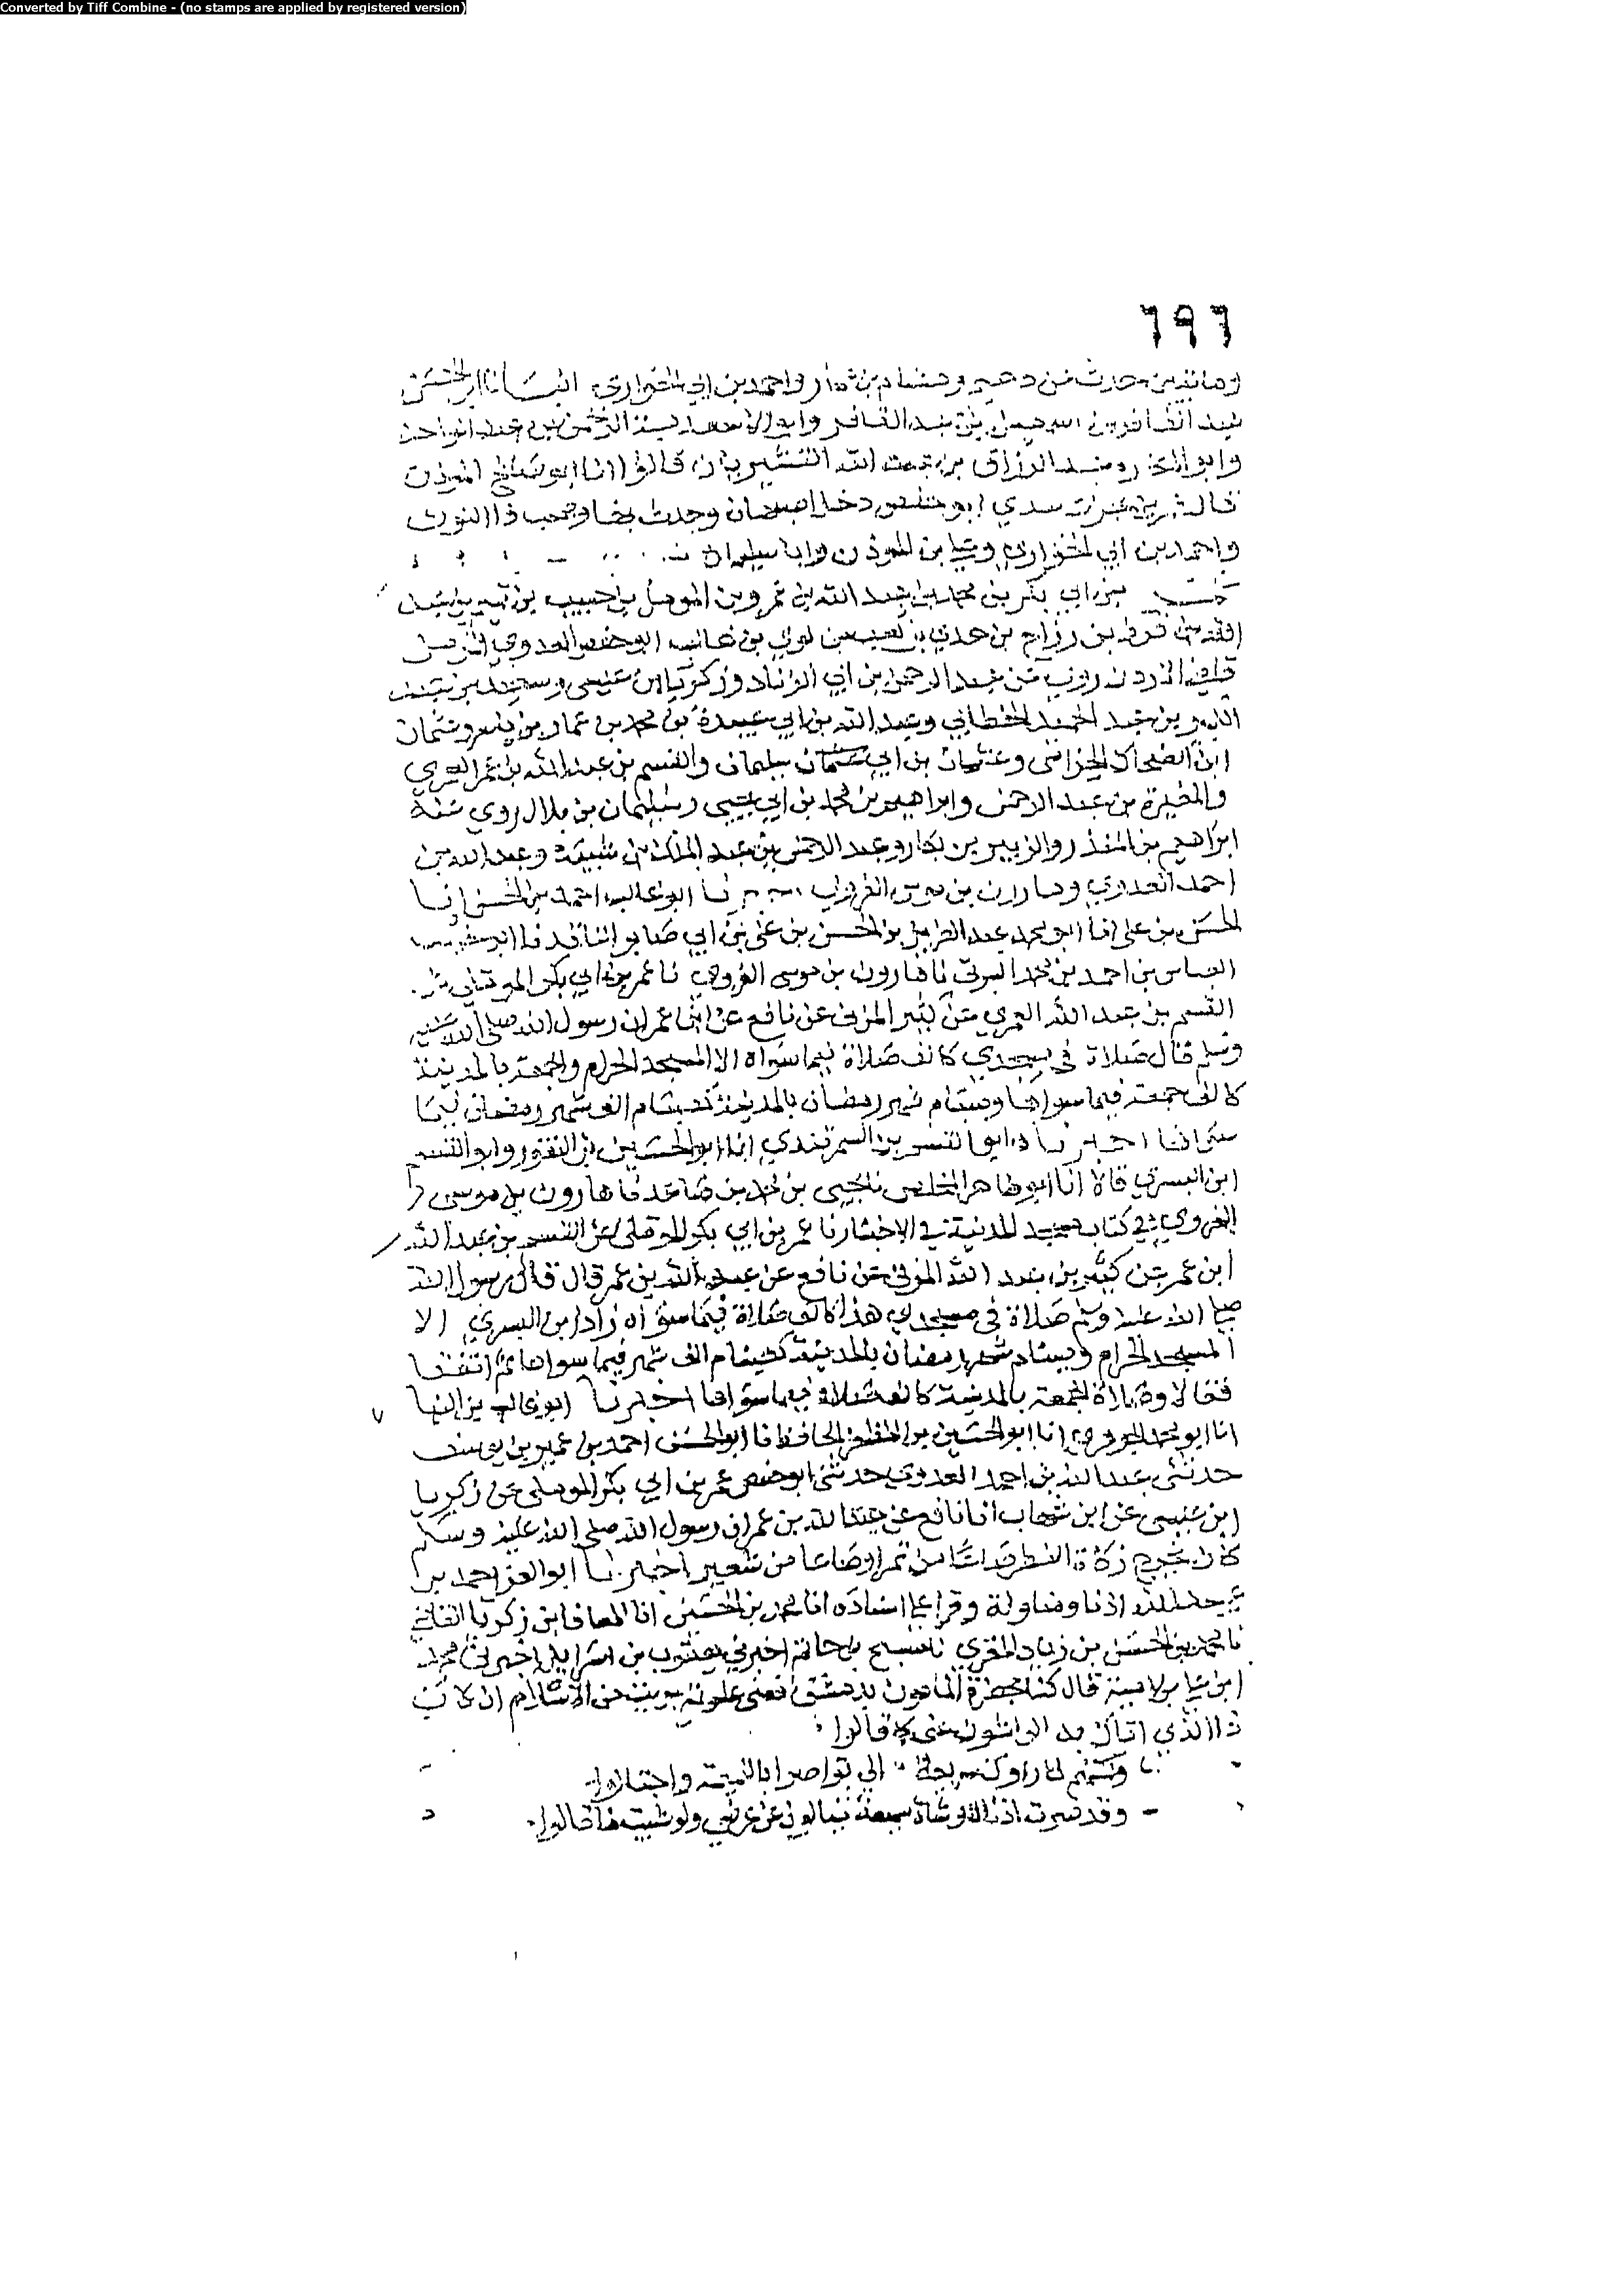 Converted by Tiff Combine - (no stamps are applied by registered version)
٦٩٦
حدث عن دحيم وهشام بن عمار واحمد بن ابي الحواري ابو الحسن
عبد الغافر بن اسمعيل بن عبد الغافر وابو الاسعد هبة الرحمن بن عبد الواحد
وابو عبد الرزاق بن عبد الله القشيريان قالوا انا ابو صالح المؤذن
قال سدي ابو منصور دخل اصبهان وحدث بها وصحب ذا النون
واحمد بن ابي الحواري وابا سليمان
عمر بن ابي بكر بن محمد بن عبد الله بن عمرو بن المومل بن حبيب بن تميم بن عبد
الله بن قرط بن رزاح بن عدي بن كعب بن لوي بن غالب ابو حفص العدوي القرشي
قاضي الاردن روى عن عبد الرحمن بن ابي الزناد وزكريا بن عيسى وسعيد بن
بن عبد الحميد وعبد الله بن ابي عبيدة بن محمد بن عمار بن ياسر وعثمان
ابن الضحاك الحزامي وعثمان بن ابي سليمان والقسم بن عبد الله بن عمر العمري
والمغيرة بن عبد الرحمن وابراهيم بن محمد بن ابي يحيى وسليمان بن بلال روى عنه
ابراهيم بن المنذر والزبير بن بكار وعبد الرحمن بن عبد الملك بن شيبة وعبد الله بن
احمد العدوي وهارون بن موسى الفروي اخبرنا ابو غالب احمد بن الحسن انا
الحسن بن علي انا ابو محمد عبد العزيز بن الحسن بن علي بن ابي صابر الناقد نا
العباس بن احمد بن محمد البرتي نا هارون بن موسى الفروي نا عمر بن ابي بكر الموملي
القسم بن عبد الله العمري عن كثير المزني عن نافع عن ابن عمر ان رسول الله صلى الله عليه
وسلم قال صلاة في مسجدي كالف صلاة فيما سواه الا المسجد الحرام والجمعة بالمدينة
كالف جمعة فيما سواها وصيام شهر رمضان بالمدينة كصيام الف شهر رمضان فيما
سواها اخبرناه ابو القسم بن السمرقندي انا ابو الحسين بن النقور وابو القسم
ابن البسري قالا انا ابو طاهر المخلص نا يحيى بن محمد بن صاعد نا هارون بن موسى
الفروي في كتاب مسجد المدينة في الاخبار نا عمر بن ابي بكر الموملي عن القسم بن عبد الله
ابن عمر عن كثير بن عبد الله المزني عن نافع عن عبد الله بن عمر قال قال رسول الله
صلى الله عليه وسلم صلاة في مسجدي هذا كالف صلاة فيما سواه زاد ابن البسري الا
المسجد الحرام وصيام شهر رمضان بالمدينة كصيام الف شهر فيما سواها ثم اتفقا
فقالا وصلاة الجمعة بالمدينة كالف صلاة فيما سواها اخبرنا ابو غالب بن البنا
انا ابو محمد الجوهري انا ابو الحسين بن المظفر الحافظ نا ابو الحسن احمد بن عمير بن يوسف
حدثني عبد الله بن احمد العدوي حدثني ابو حفص عمر بن ابي بكر الموملي عن زكريا
ابن عيسى عن ابن شهاب انا نافع عن عبد الله بن عمر ان رسول الله صلى الله عليه وسلم
كان يخرج زكاة الفطر صاعا من تمر او صاعا من شعير اخبرنا ابو العز احمد بن
عبيد الله اذنا ومناولة وقرا علي اسناده انا محمد بن الحسين انا المعافا بن زكريا القاضي
نا محمد بن الحسن بن زياد المقري نا المسبح بن حاتم اخبرني يعقوب بن اسرايل اخبرني محمد
ابن قال كنا بحضرة المامون بدمشق فغنى علويه برئت من الاسلام ان كان
ذا الذي اتاك به الواشون عني كما قالوا
ولكنهم لما راوك سريعة الي تواصوا بالنميمة واحتالوا
وقد صرت اذنا للوشاة سميعة ينالون من عرضي ولو شئت ما نالوا